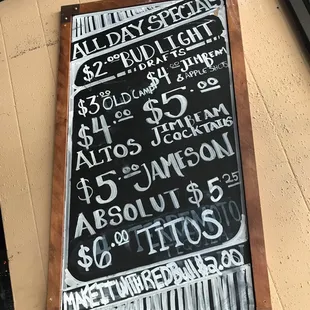 ALL DAY SPECIAL
$2.00 BUD LIGHT
DRAFTS
$4.00 JIM BEAM
& APPLE SHOTS
$3.00 OLD CAMP
$4.00 $5.00
ALTOS JIM BEAM
COCKTAILS
$5.00 JAMESON
ABSOLUT $5.25
$6.00 TITOS
MAKE IT WITH RED BULL $2.00